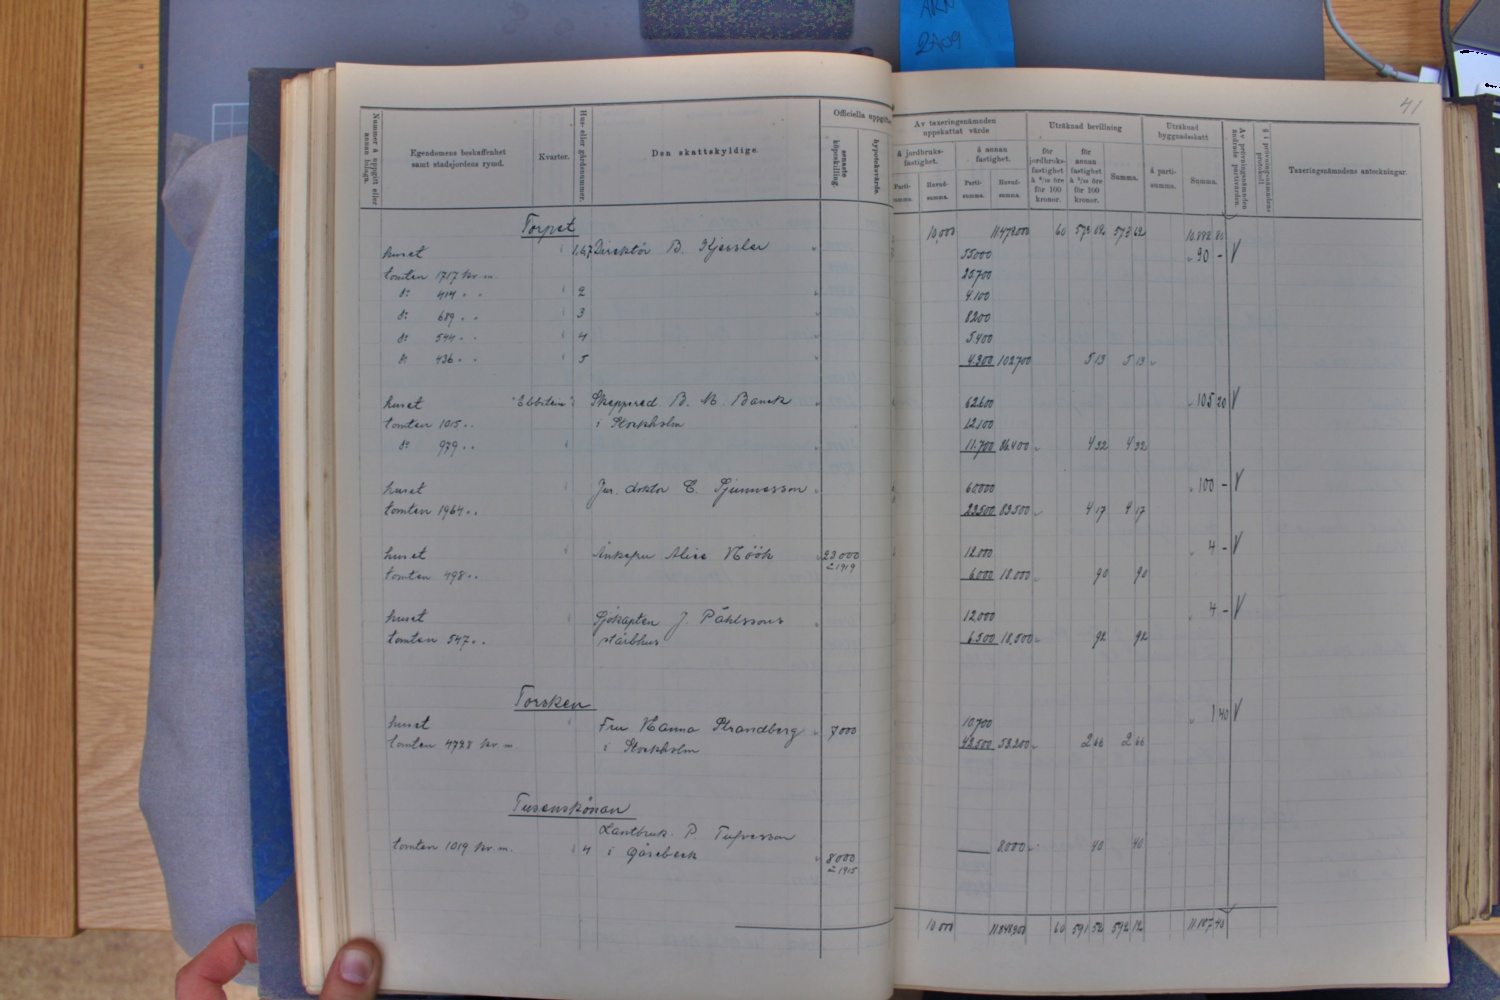 ARK
2A09
41
Nummer å uppgift eller annan bilaga.
Egendomens beskaffenhet samt stadsjordens rymd.
Kvarter.
Hus- eller gårdsnummer.
Den skattskyldige.
Officiella uppgifter
senaste köpeskilling.
hypoteksvärde.
Av taxeringsnämnden uppskattat värde
å jordbruksfastighet.
å annan fastighet.
Partisumma.
Huvudsumma.
Partisumma.
Huvudsumma.
Uträknad bevillning
för jordbruksfastighet
för 100 kronor.
för annan fastighet
för 100 kronor.
Summa.
Uträknad byggnadsskatt
å partisumma.
Summa.
Av prövningsnämnden ändrade partivärden.
§ i prövningsnämndens protokoll
Taxeringsnämndens anteckningar.
Torpet 10,000 11478000 60 573 02 573 62 10,882 80
huset 1,6,7 Direktör B. Kjessler 55000 90 -
tomten 1717 kv. m. 25700
d:o 414 2 4.100
d:o 689 3 8200
d:o 544 4 5.400
d:o 436 5 4.300 102700 5 13 5 13
huset "Ebbiten" Skeppsred B. M. Banck 62600 105 20
tomten 1015 i Stockholm 12100
d:o 979 11.700 86.400 4 32 4 32
huset Jur. doktor C. Gjunnesson 60000 100 -
tomten 1964 23500 83500 4 17 4 17
huset Änkefru Alice Höök 23000 12.000 4 -
å 1919
tomten 498 6.000 18.000 90 90
huset Sjökapten J. Påhlssons 12,000 4 -
tomten 547 stärbhus 6.500 18,500 92 92
Torsken
huset Fru Hanna Strandberg 7000 10,700 1 40
tomten 4728 kv. m. i Stockholm 42.500 53.200 2 66 2 66
Tusenskönan
Lantbruk. P. Tufvesson
tomten 1019 kv. m. 4 i Görebeck 8000 8,000 40 40
å 1915
10,000 11848300 60 591 52 592 12 11187 40